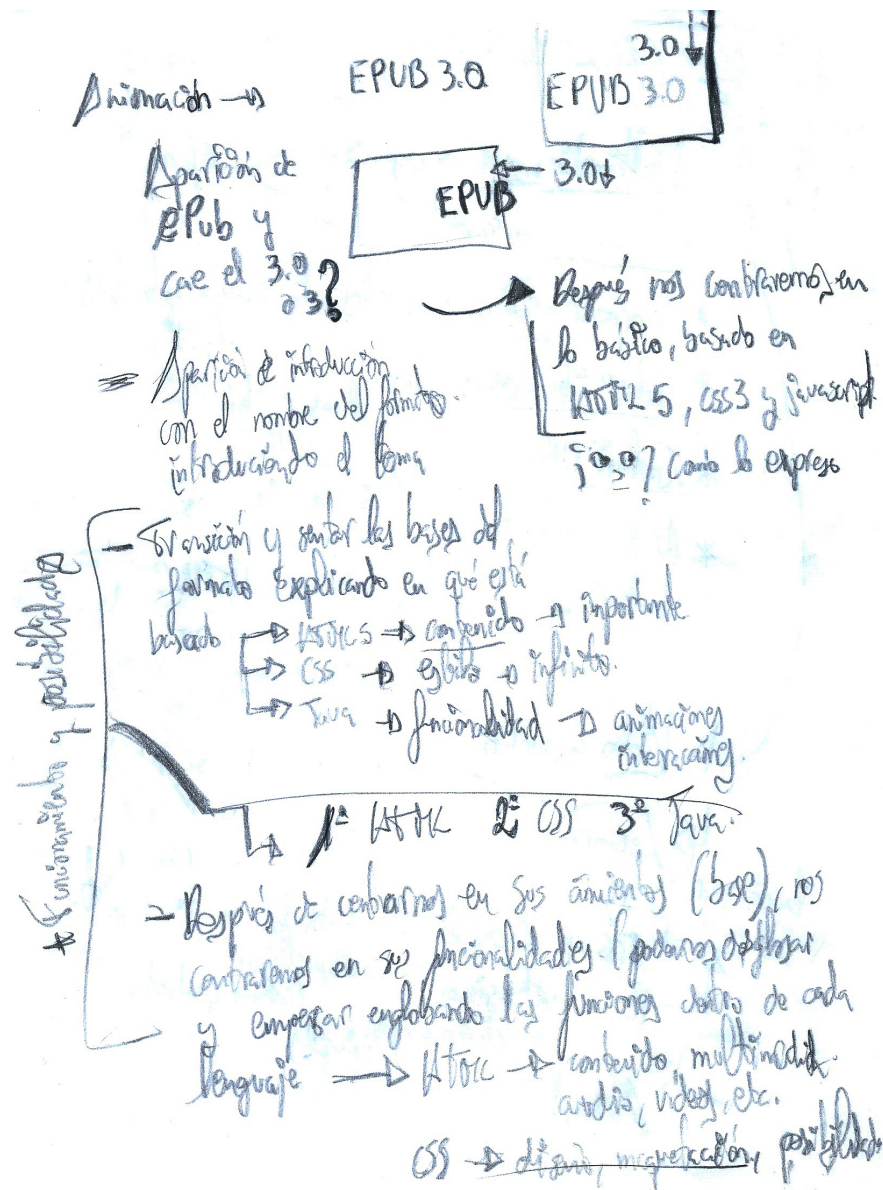 Animación →
EPUB 3.0
3.0 ↓
EPUB 3.0
Aparición de
ePub y
cae el 3.0
ó 3?
EPUB
← 3.0↓
Después nos centraremos en
lo básico, basado en
HTML 5, CSS3 y javascript
como lo expreso
= Aparición de introducción
con el nombre del formato
introduciendo el tema
* Funcionamiento y posibilidades
- Transición y sentar las bases del
formato explicando en qué está
basado → HTML5 → contenido → importante
→ CSS → estilo → infinito.
→ Java → funcionalidad → animaciones
interacciones.
→ 1º HTML 2º CSS 3º Java.
- Después de centrarnos en sus cimientos (base), nos
centraremos en sus funcionalidades (podemos desglosar
y empezar englobando las funciones dentro de cada
lenguaje → HTML → contenido, multimedia
audio, videos, etc.
CSS → diseño, maquetación, posibilidad